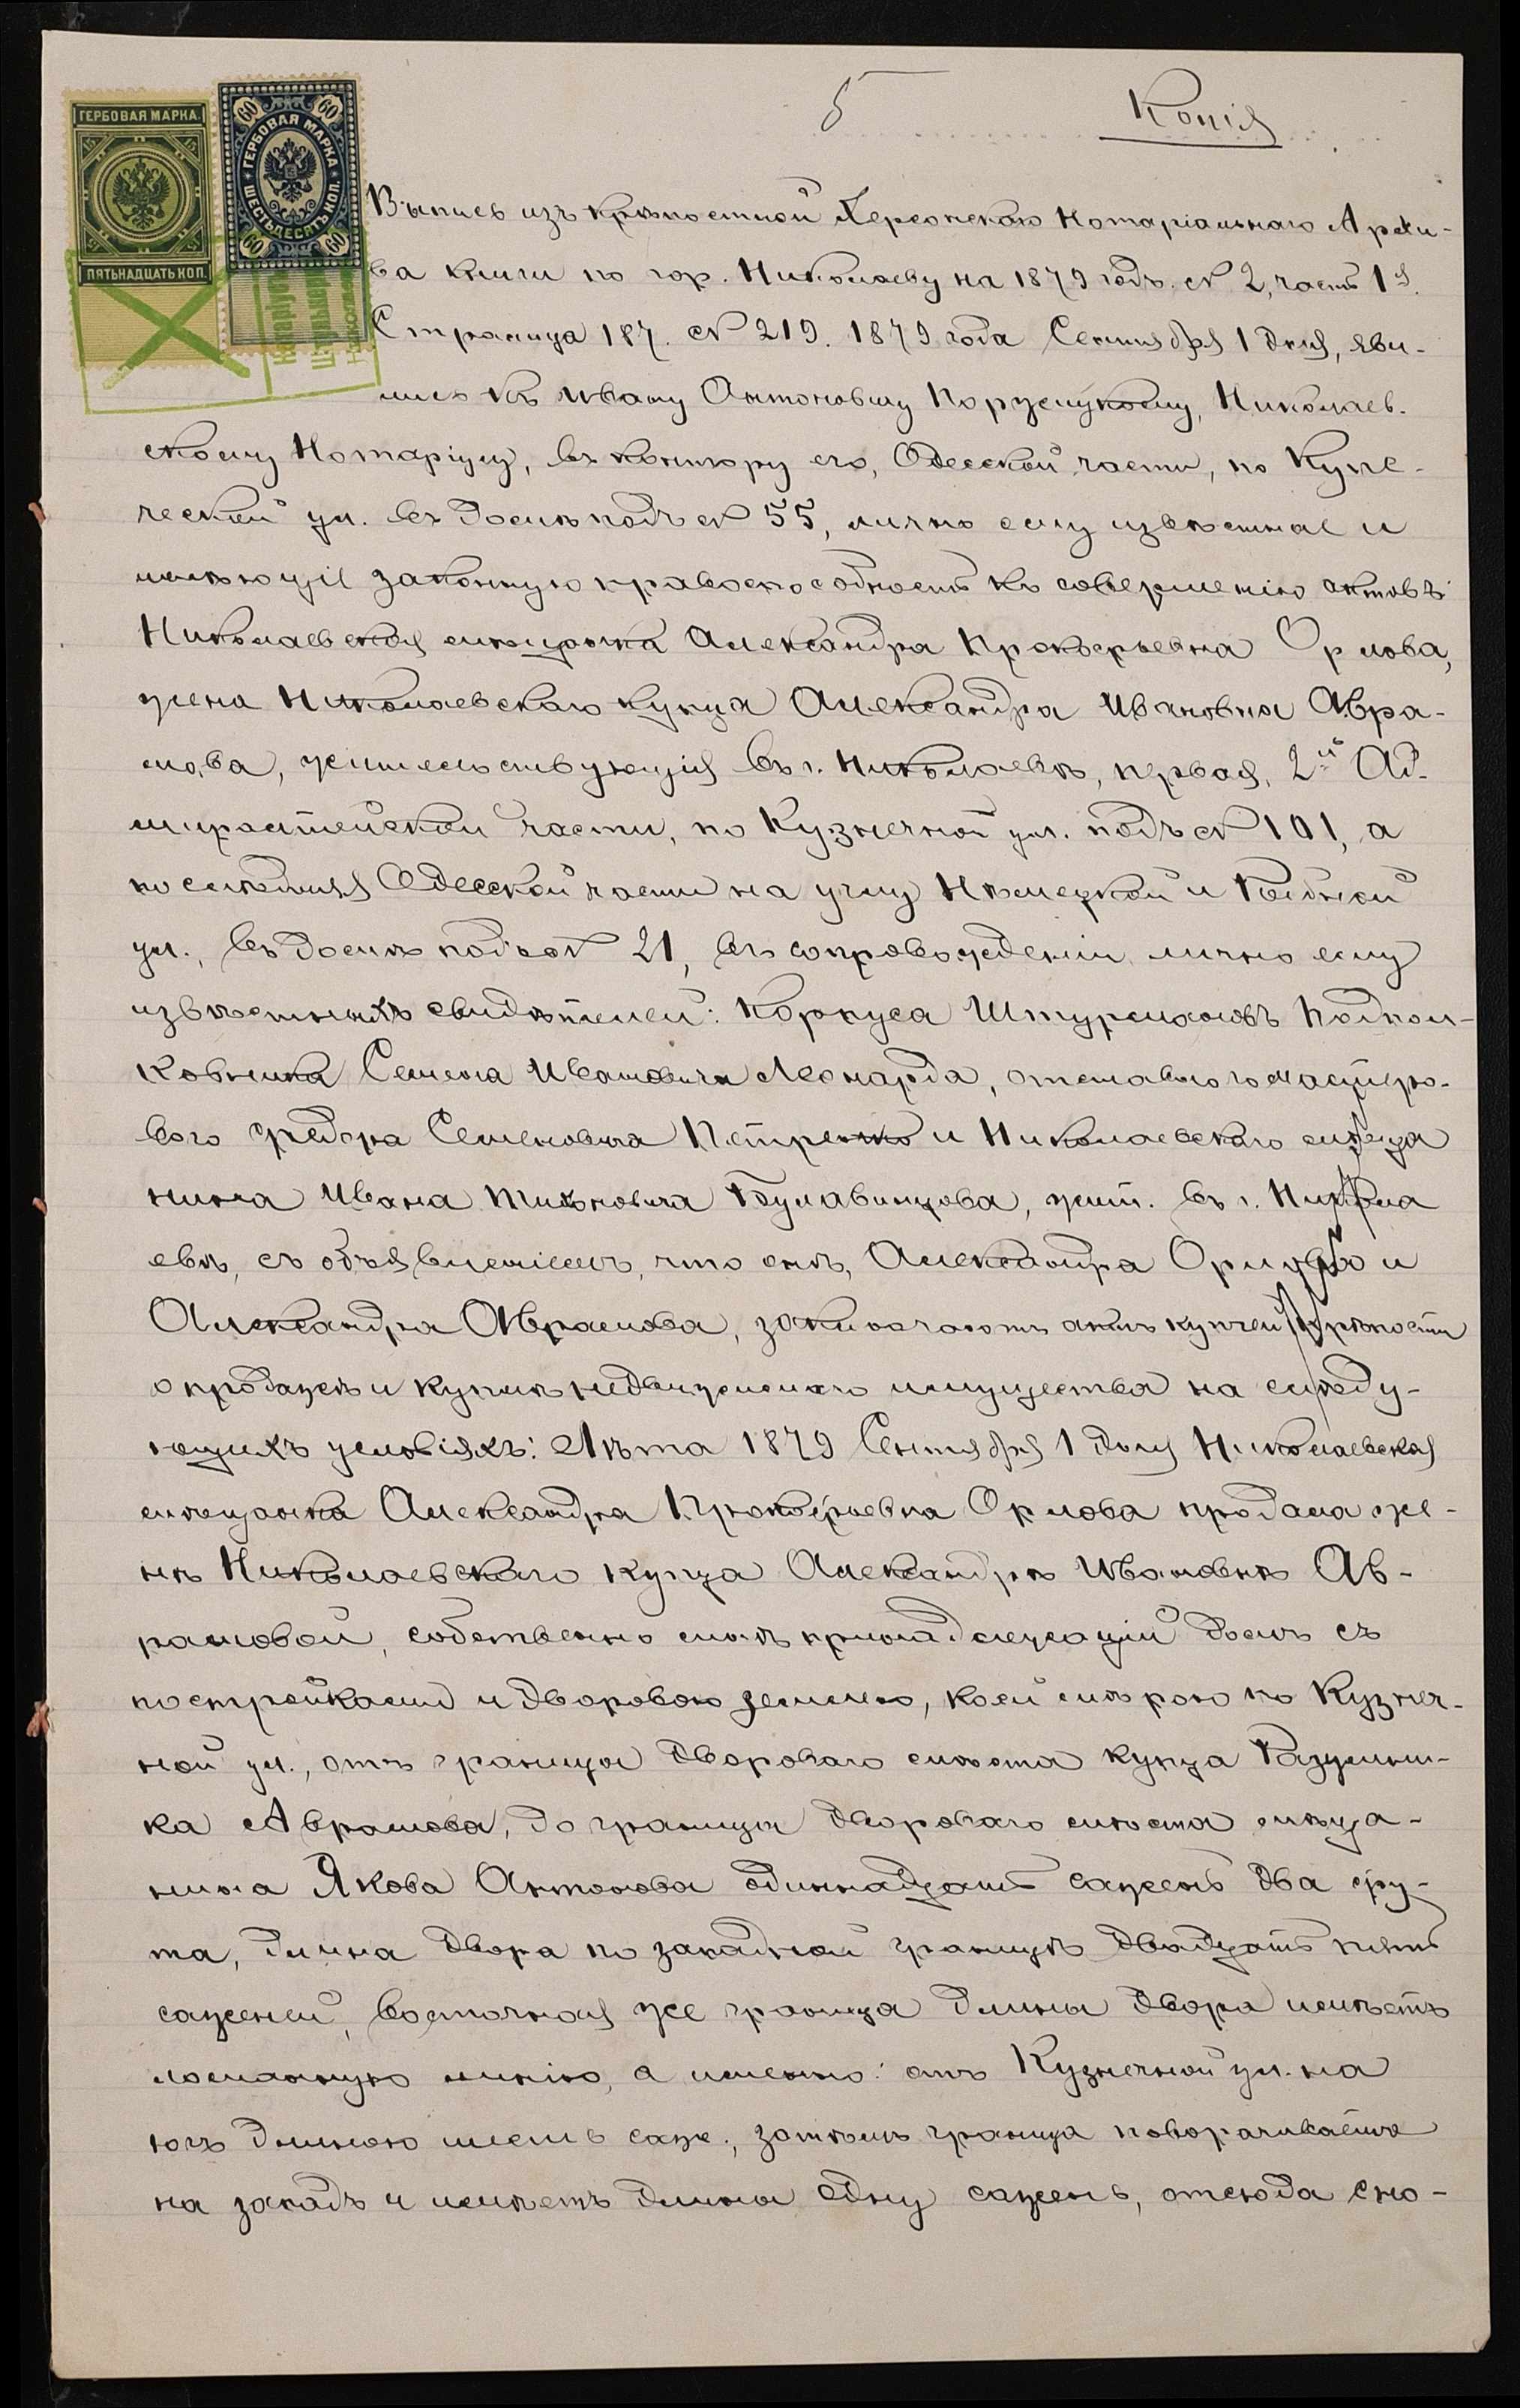 5
Копія
ГЕРБОВАЯ МАРКА.
ПЯТЬНАДЦАТЬ КОП.
60 60
ГЕРБОВАЯ МАРКА
ШЕСТЬДЕСЯТЪ КОП.
60 60
Выпись изъ крѣпостной Херсонскаго Нотаріальнаго Архи-
ва книги по гор. Николаеву на 1879 годъ. № 2, часть 1я.
Страница 187. № 219. 1879 года Сентября 1 дня, яви-
лись къ Ивану Антоновичу Николаев-
скому Нотаріусу, въ контору его, Одесской части, по Купе-
ческой ул. въ домѣ подъ № 55, лично ему извѣстныя и
имѣющія законную правоспособность къ совершенію актовъ:
Николаевская мѣщанка Александра Прокофьевна Орлова,
жена Николаевскаго купца Александра Ивановна Авра-
мова, жительствующія въ г. Николаевѣ, первая, 2й Ад-
миралтейской части, по Кузнечной ул. подъ № 101, а
послѣдняя Одесской части на углу Нѣмецкой и
ул., въ домѣ подъ № 21, въ сопровожденіи лично ему
извѣстныхъ свидѣтелей: Корпуса Штурмановъ Подпол-
ковника Семена Ивановича Леонарда, отставного мастеро-
вого Федора Семеновича Петренко и Николаевскаго мѣща
нина Ивана Тихоновича Булавинцова, жит. въ г. Никола
евѣ, съ объявленіемъ, что онѣ, Александра Орлова и
Александра Аврамова, заключаютъ актъ купчей крѣпости
о продажѣ и куплѣ недвижимаго имущества на слѣду-
ющихъ условіяхъ: Лѣта 1879 Сентября 1 дня Николаевская
мѣщанка Александра Прокофьевна Орлова продала же-
нѣ Николаевскаго купца Александрѣ Ивановнѣ Ав-
рамовой, собственно мнѣ принадлежащій домъ съ
постройками и дворовою землею, коей мѣрою по Кузнеч-
ной ул., отъ границы двороваго мѣста купца Разумни-
ка Аврамова, до границы двороваго мѣста мѣща-
нина Якова Антонова одиннадцать сажень два фу-
та, длина двора по западной границѣ двадцать пять
саженей, восточная же граница длины двора имѣетъ
ломанную линію, а именно: отъ Кузнечной ул. на
югъ длиною шесть саж., затѣмъ граница поворачивается
на западъ и имѣетъ длины одну сажень, отсюда сно-